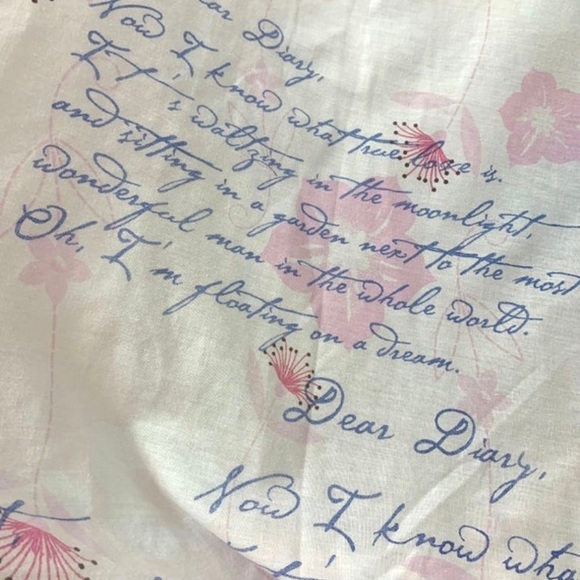 Dear Diary,
Now I know what true love is.
It's waltzing in the moonlight,
and sitting in a garden next to the most
wonderful man in the whole world.
Oh, I'm floating on a dream.
Dear Diary,
Now I know wha